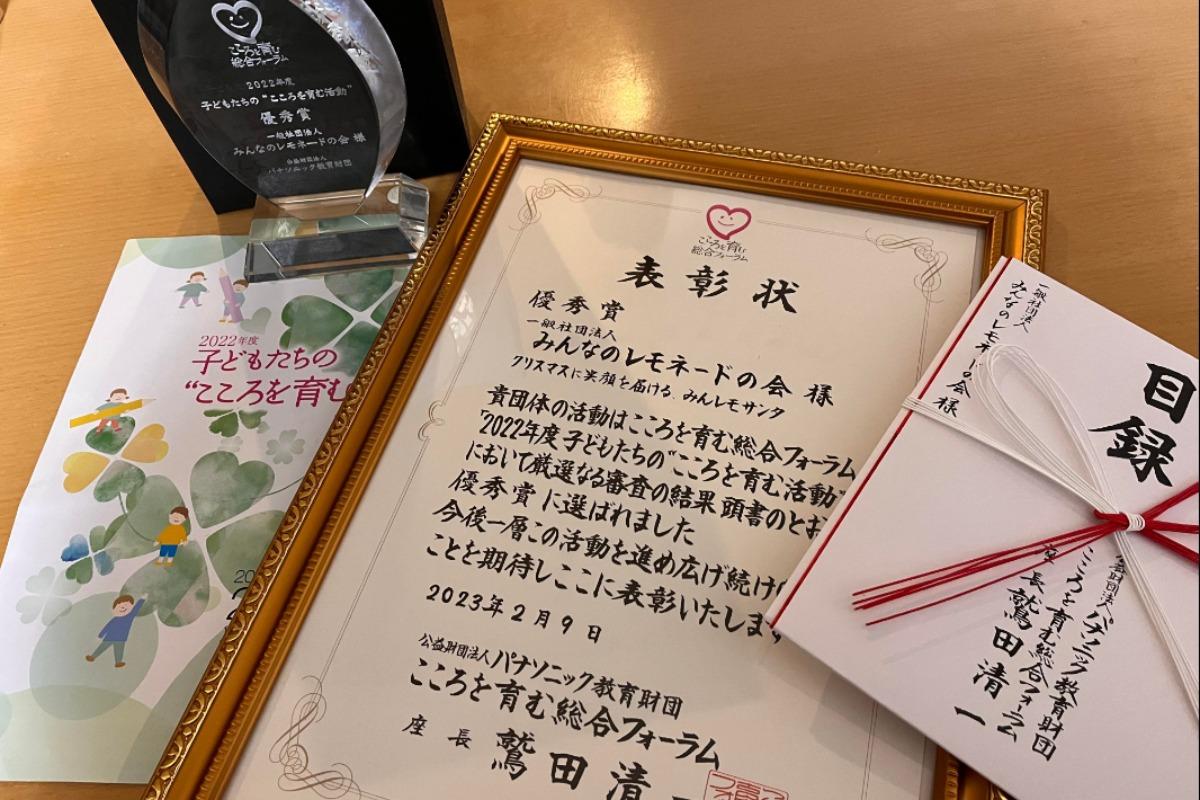 こころを育む
総合フォーラム
2022年度
子どもたちの“こころを育む活動”
優秀賞
一般社団法人
みんなのレモネードの会 様
公益財団法人
パナソニック教育財団
2022年度
子どもたちの
“こころを育む
20
こころを育む
総合フォーラム
表彰状
優秀賞
一般社団法人
みんなのレモネードの会 様
クリスマスに笑顔を届ける、みんレモサンタ
貴団体の活動はこころを育む総合フォーラム
「2022年度子どもたちの“こころを育む活動”
において厳選なる審査の結果 頭書のとお
優秀賞に選ばれました
今後一層この活動を進め広げ続け
ことを期待しここに表彰いたします
2023年2月9日
公益財団法人パナソニック教育財団
こころを育む総合フォーラム
座長 鷲田清一
目録
一般社団法人
みんなのレモネードの会 様
公益財団法人パナソニック教育財団
こころを育む総合フォーラム
座長 鷲田清一